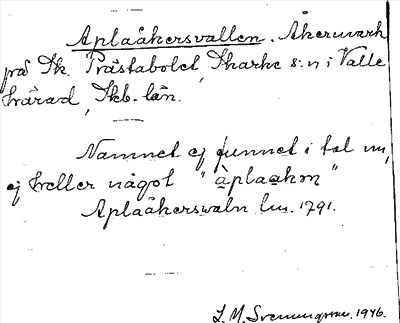 Aplaåkersvallen. Åkermark
på Sk. Prästabolet, Skarke s:n i Valle
härad, Skb. län.
Namnet ej funnet i tal nu,
ej heller något "àplaakɱ"
Aplaåkerswaln lm. 1791.
L. M. Svenungsson. 1946.